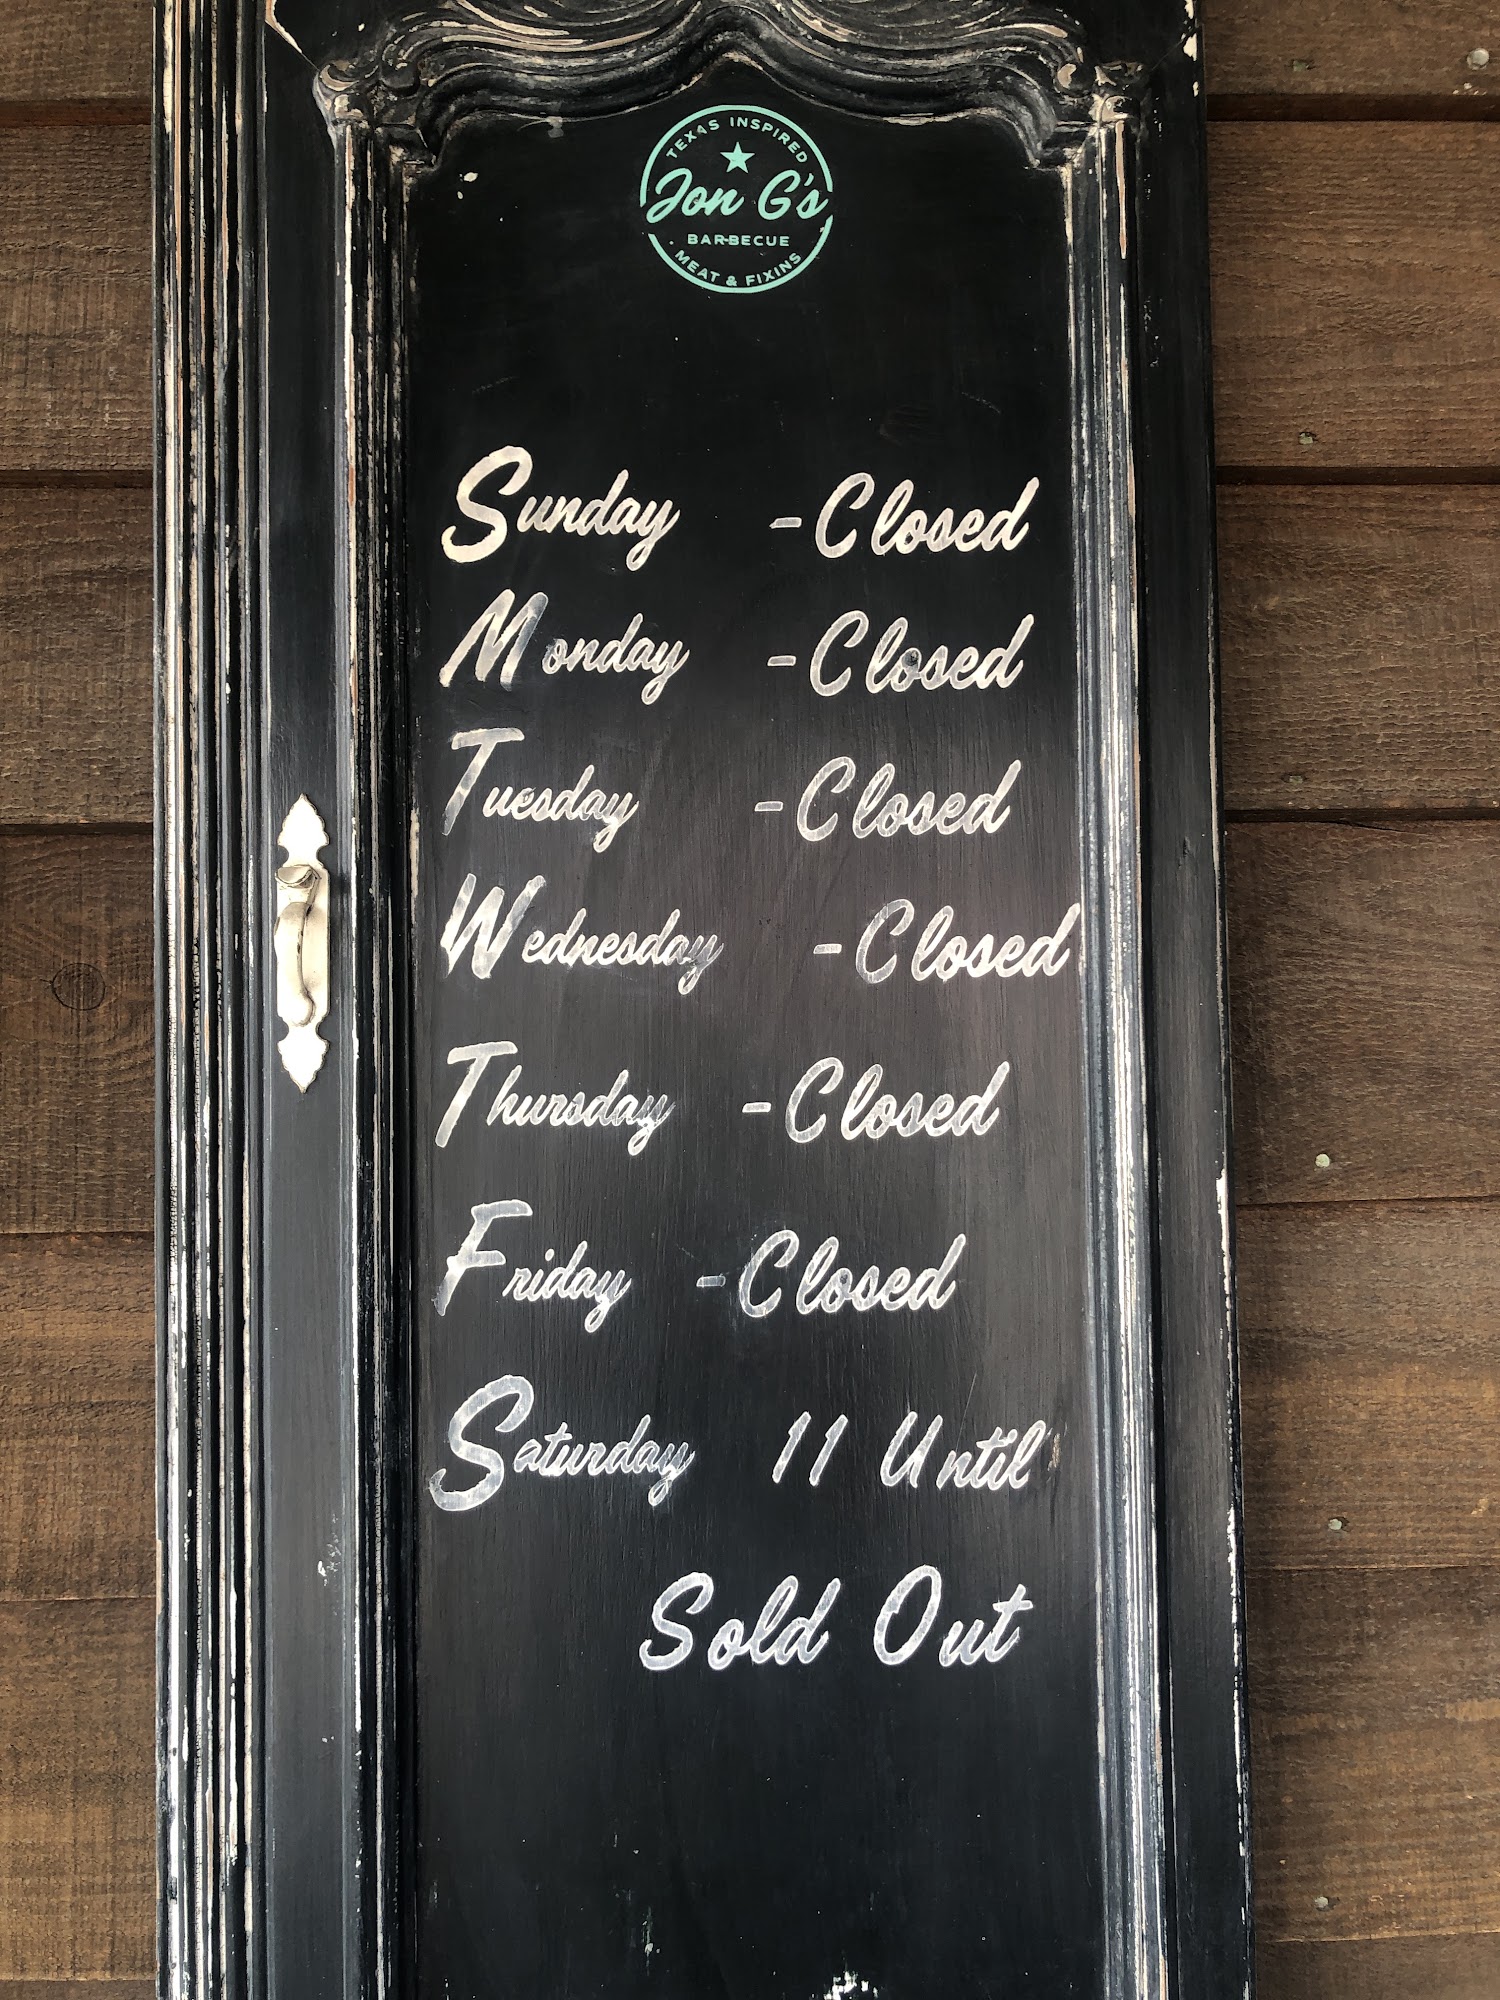 TEXAS INSPIRED
Jon G's
BARBECUE
MEAT & FIXINS
Sunday - Closed
Monday - Closed
Tuesday - Closed
Wednesday - Closed
Thursday - Closed
Friday - Closed
Saturday 11 Until
Sold Out